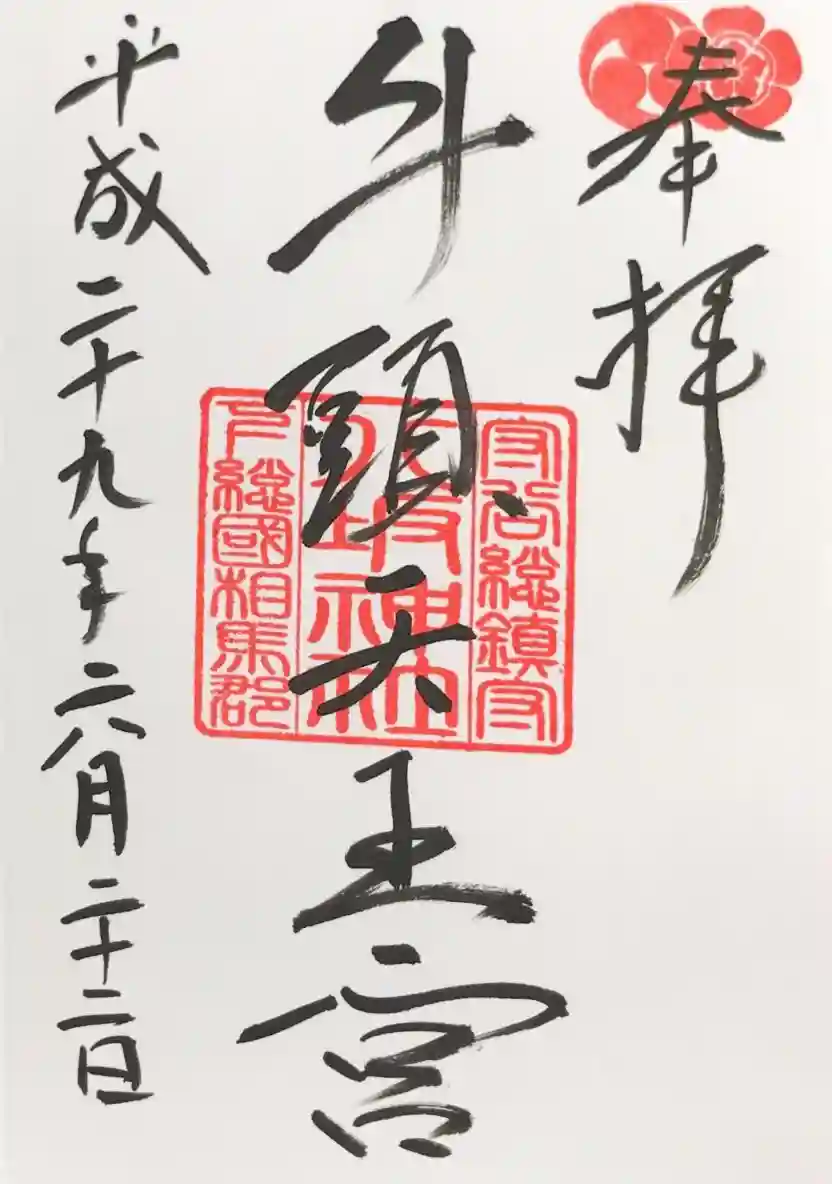 奉拝
牛頭天王宮
平成二十九年六月二十二日
守谷総鎮守
八坂神社
下総國相馬郡